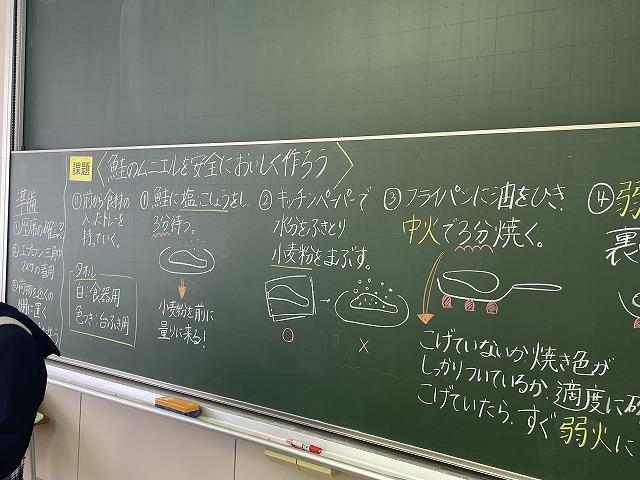 課題
鮭のムニエルを安全においしく作ろう
準備
①座席の確認
②エプロン 三角巾
マスクの着用
③荷物を近くの
棚に置く
⓪前から食材の
入ったトレーを
持っていく。
-タオル-
白・食器用
色つき・台ふき用
①鮭に塩、こしょうをし、
3分待つ。
小麦粉を前に
量りに来る!
②キッチンペーパーで
水分をふきとり
小麦粉をまぶす。
○
×
③フライパンに油をひき、
中火で3分焼く。
こげていないか、焼き色が
しっかりついているか、適度に
こげていたら、すぐ弱火に
④弱
裏